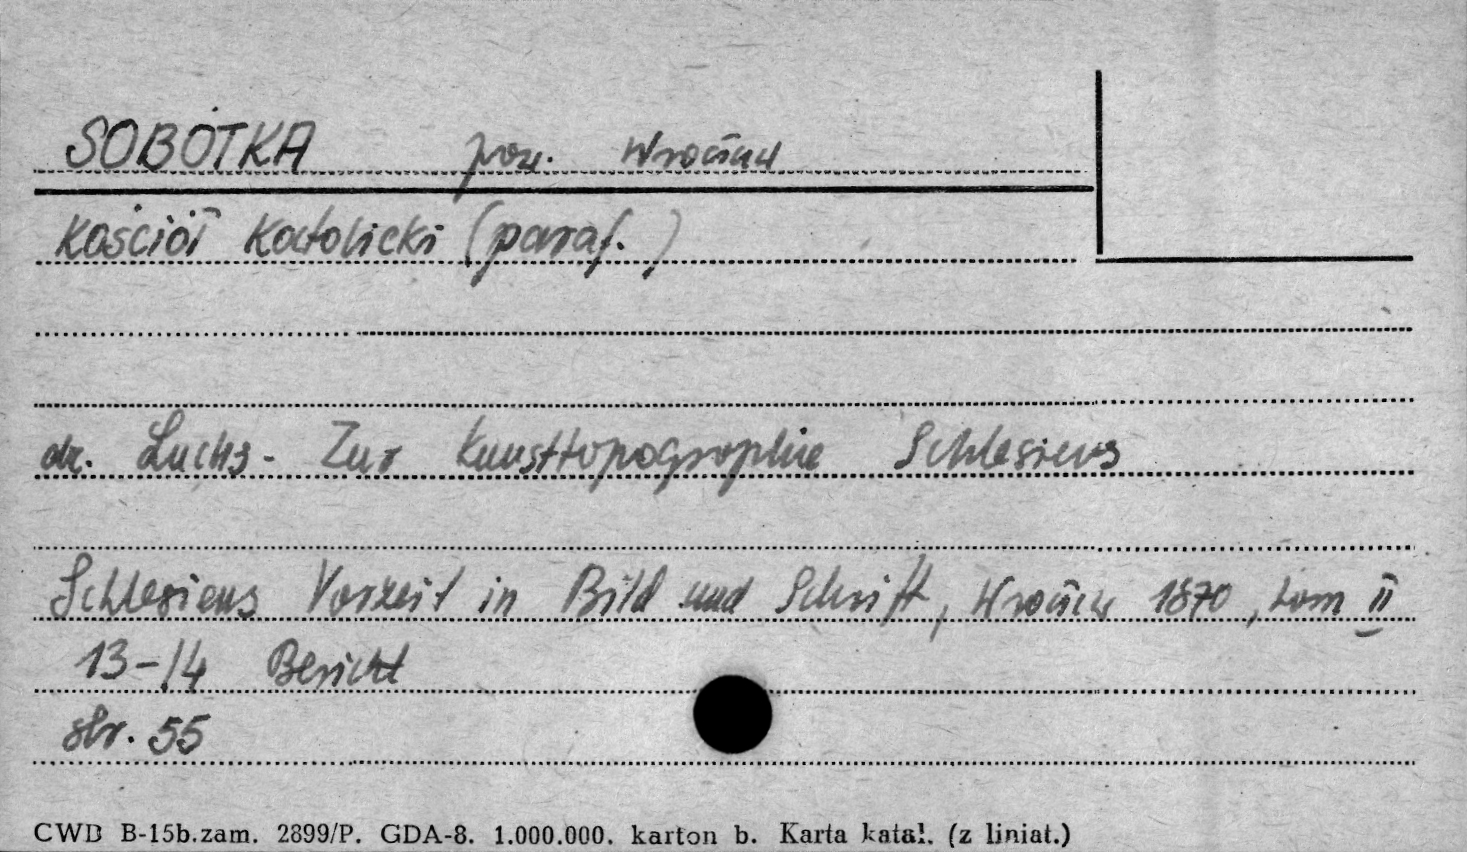 SOBÓTKA pow. Wrocław
Kościół Katolicki (paraf.)
dr. Luchs - Zur Kunsttopographie Schlesiens
Schlesiens Vorzeit in Bild und Schrift, Wrocław 1870, tom II
13-14 Bericht
str. 55
CWD B-15b.zam. 2899/P. GDA-8. 1.000.000. karton b. Karta katal. (z liniat.)